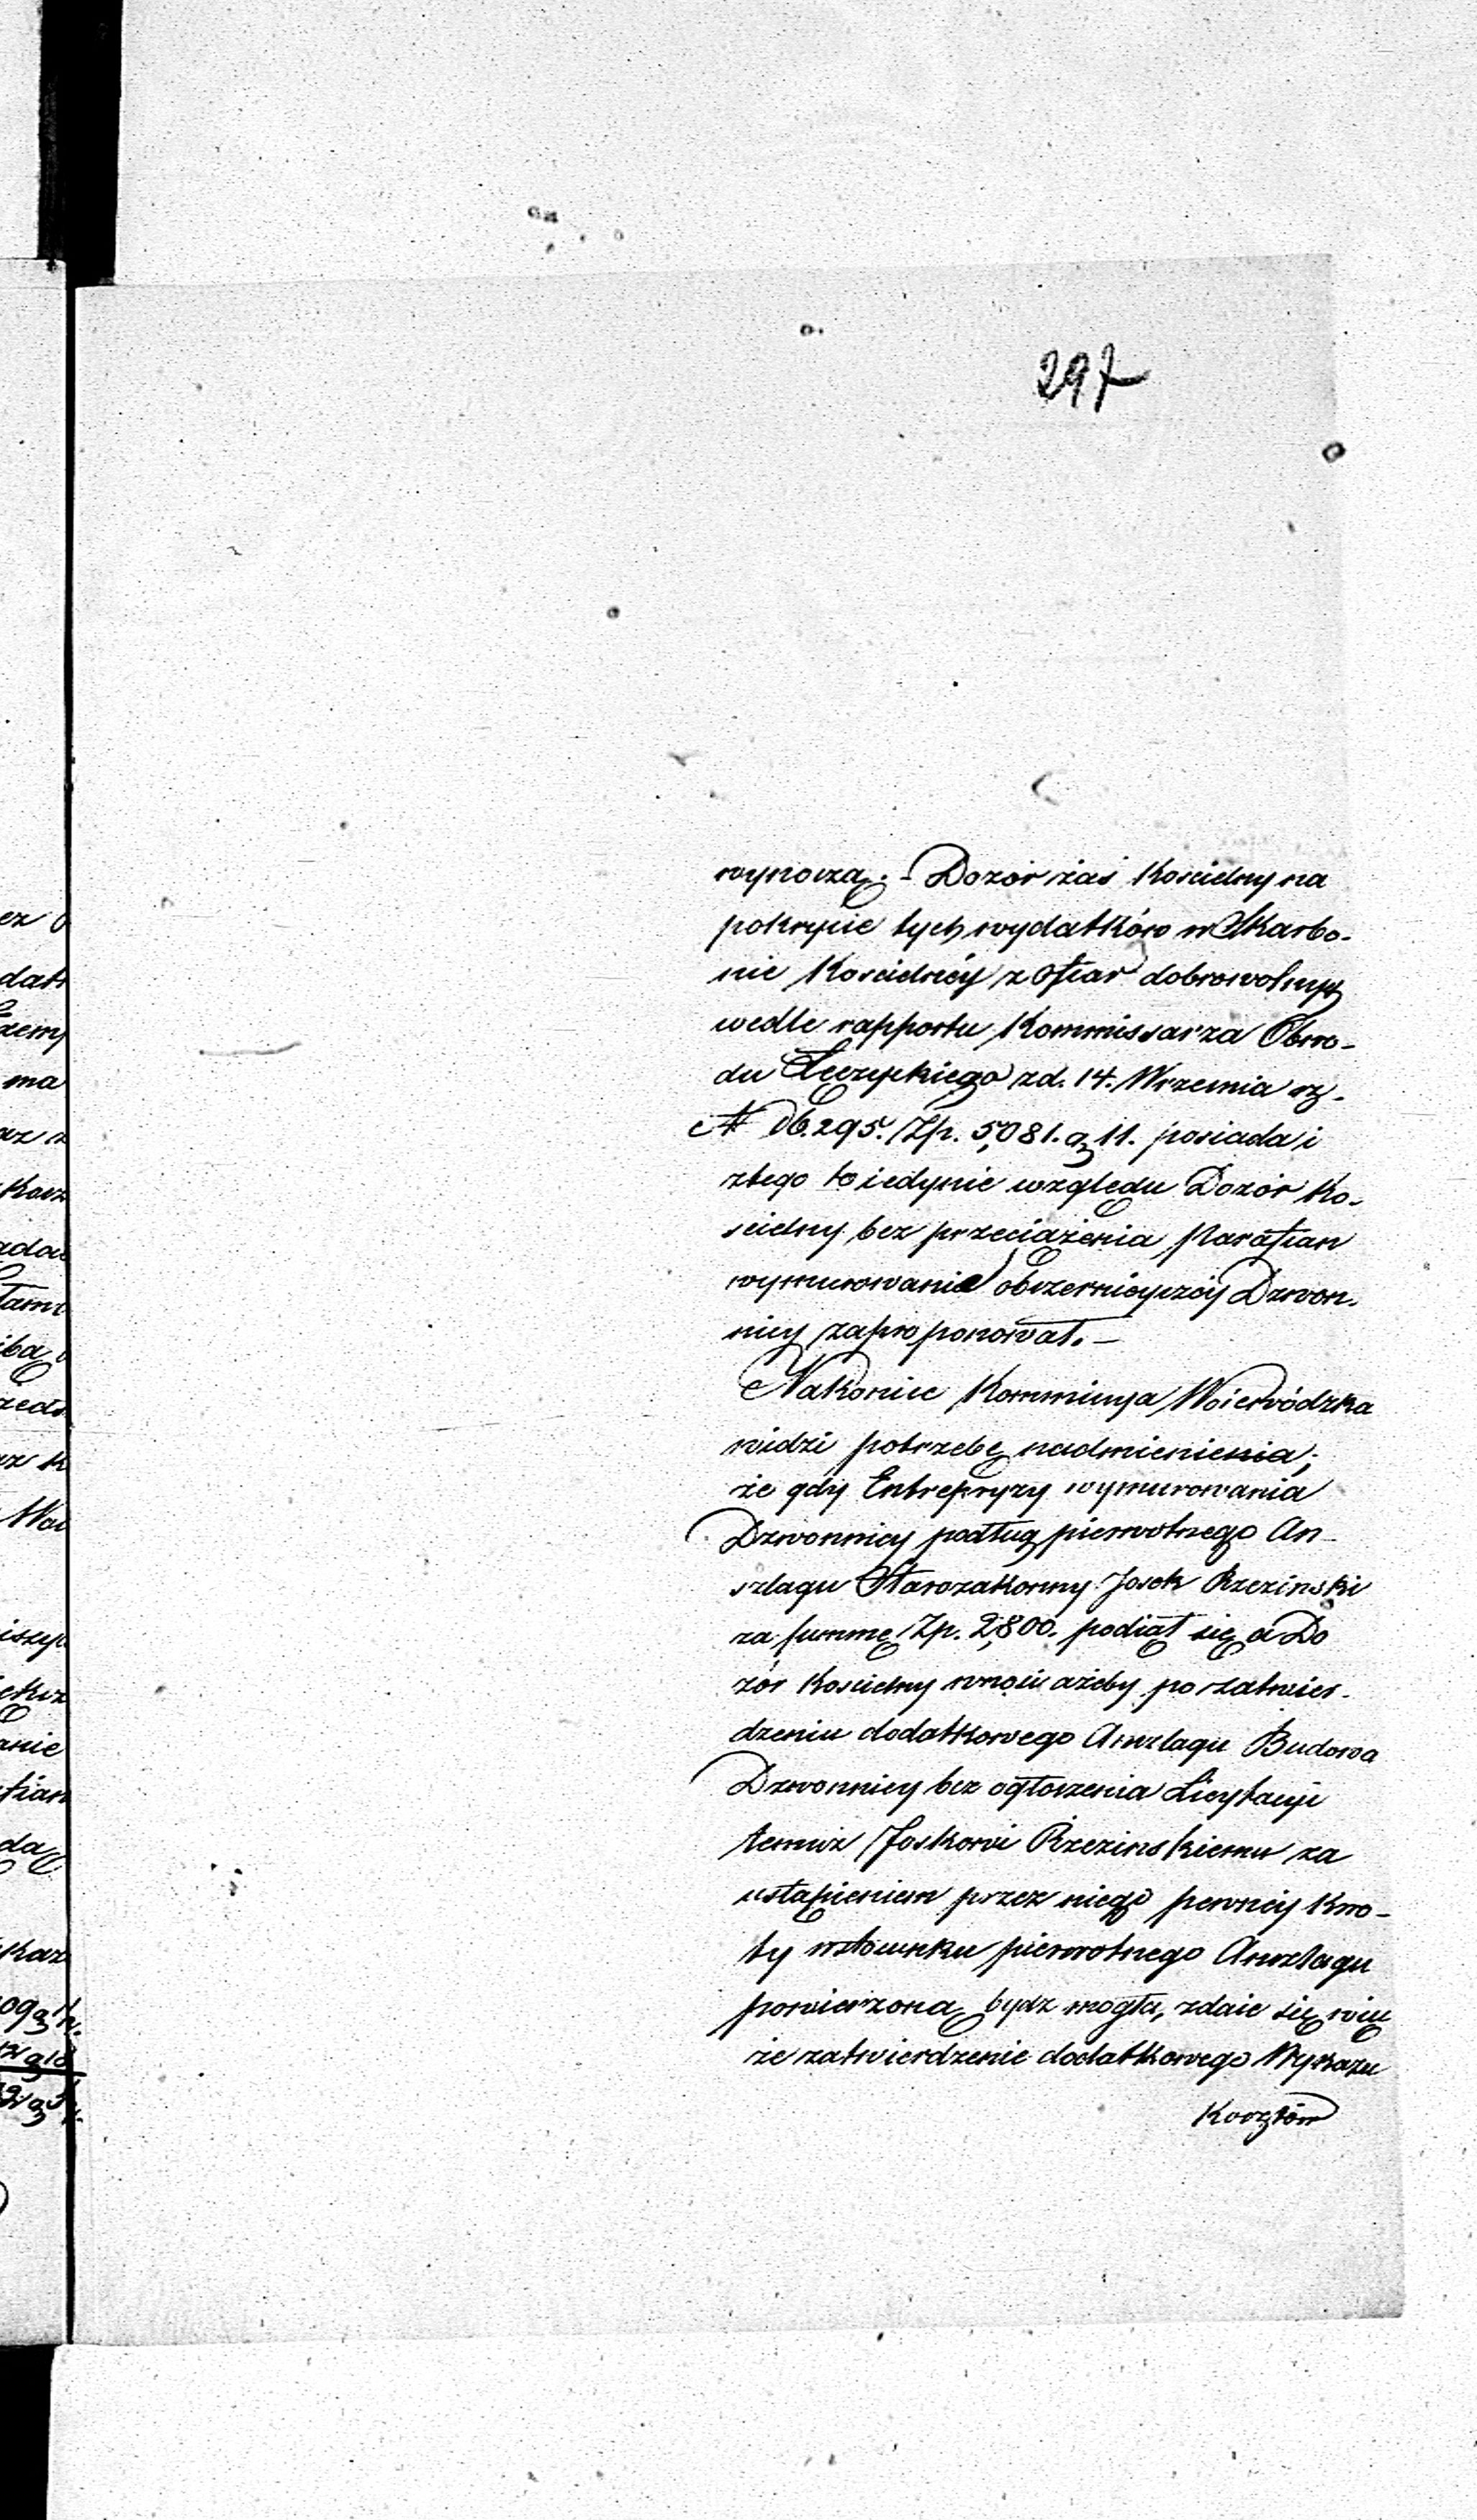 297
wynoszą. - Dozór zaś Kościelny na
pokrycie tych wydatków w Skarbo-
nie Kościelnéy z ofiar dobrowolnych
wedle rapportu Kommissarza Obwo-
du Łęczyckiego z d. 14. Września rz.
N 295. Zp. 5,081. g 11. posiada i
z tego to iedynie względu Dozór Ko-
ścielny bez przeciążenia Parafian
wymurowanie obszernieyszéy Dzwon-
nicy zaproponował. -
Nakoniec Kommissya Woiewódzka
widzi potrzebę nadmienienia;
że gdy Entrepryzy wymurowania
Dzwonnicy podług pierwotnego An-
szlagu Starozakonny Josek Rzezinski
za summę Zp. 2,800. podiął się a Do
zór Kościelny wnosi ażeby po zatwier-
dzeniu dodatkowego Anszlagu Budowa
Dzwonnicy bez ogłoszenia Licytacyi
temuż Joskowi Rzezinskiemu za
ustąpieniem przez niego pewnéy Kwo-
ty w stosunku pierwotnego Anszlagu
powierzoną bydz mogła, zdaie się więc
że zatwierdzenie dodatkowego Wykazu
Kosztów